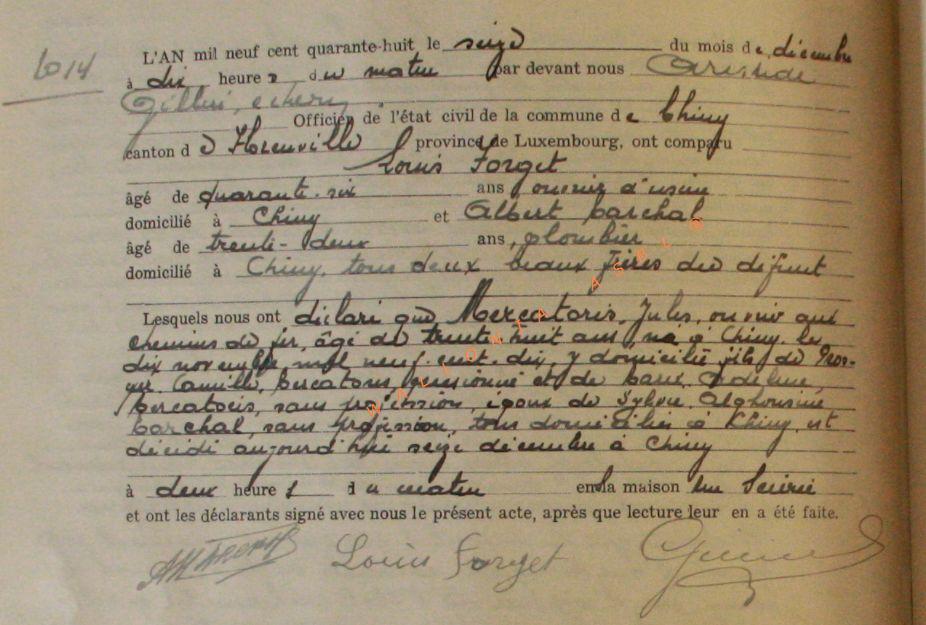 1014
L'AN mil neuf cent quarante-huit le seize du mois de décembre
à dix heures du matin par devant nous Aristide
Gillet, échevin
Officier de l'état civil de la commune de Chiny
canton de Florenville province de Luxembourg, ont comparu
Louis Forget
âgé de quarante-six ans ouvrier d'usine
domicilié à Chiny et Albert Marchal
âgé de trente-deux ans, plombier
domicilié à Chiny, tous deux beaux frères du défunt
Lesquels nous ont déclaré que Mercatoris, Jules, ouvrier aux
chemins de fer, âgé de trente huit ans, né à Chiny, le
dix novembre mil neuf cent dix, y domicilié, fils de Pros-
per Camille Mercatoris, pensionné et de Marie Adeline
Mercatoris, sans profession, époux de Sylvie Alphonsine
Marchal, sans profession, tous domiciliés à Chiny, est
décédé aujourd'hui seize décembre à Chiny
à deux heures du matin en la maison
et ont les déclarants signé avec nous le présent acte, après que lecture leur en a été faite.
Louis Forget